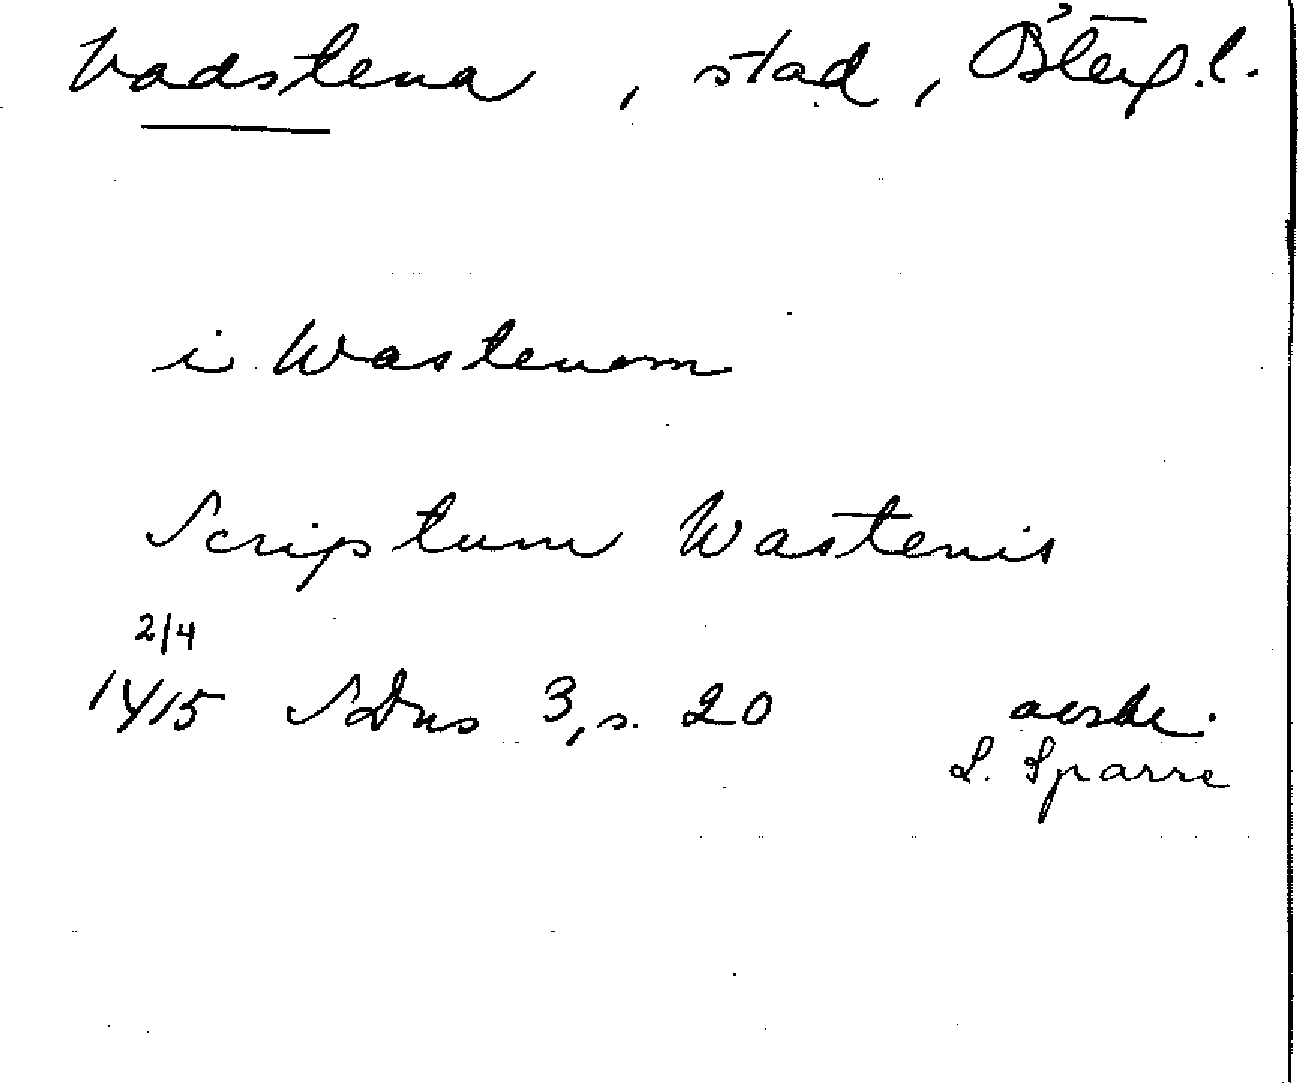 Vadstena, stad, Östergl.
i Wastenom
Scriptum Wastenis
2/4
1415 SDns 3, s. 20 avskr.
L. Sparre